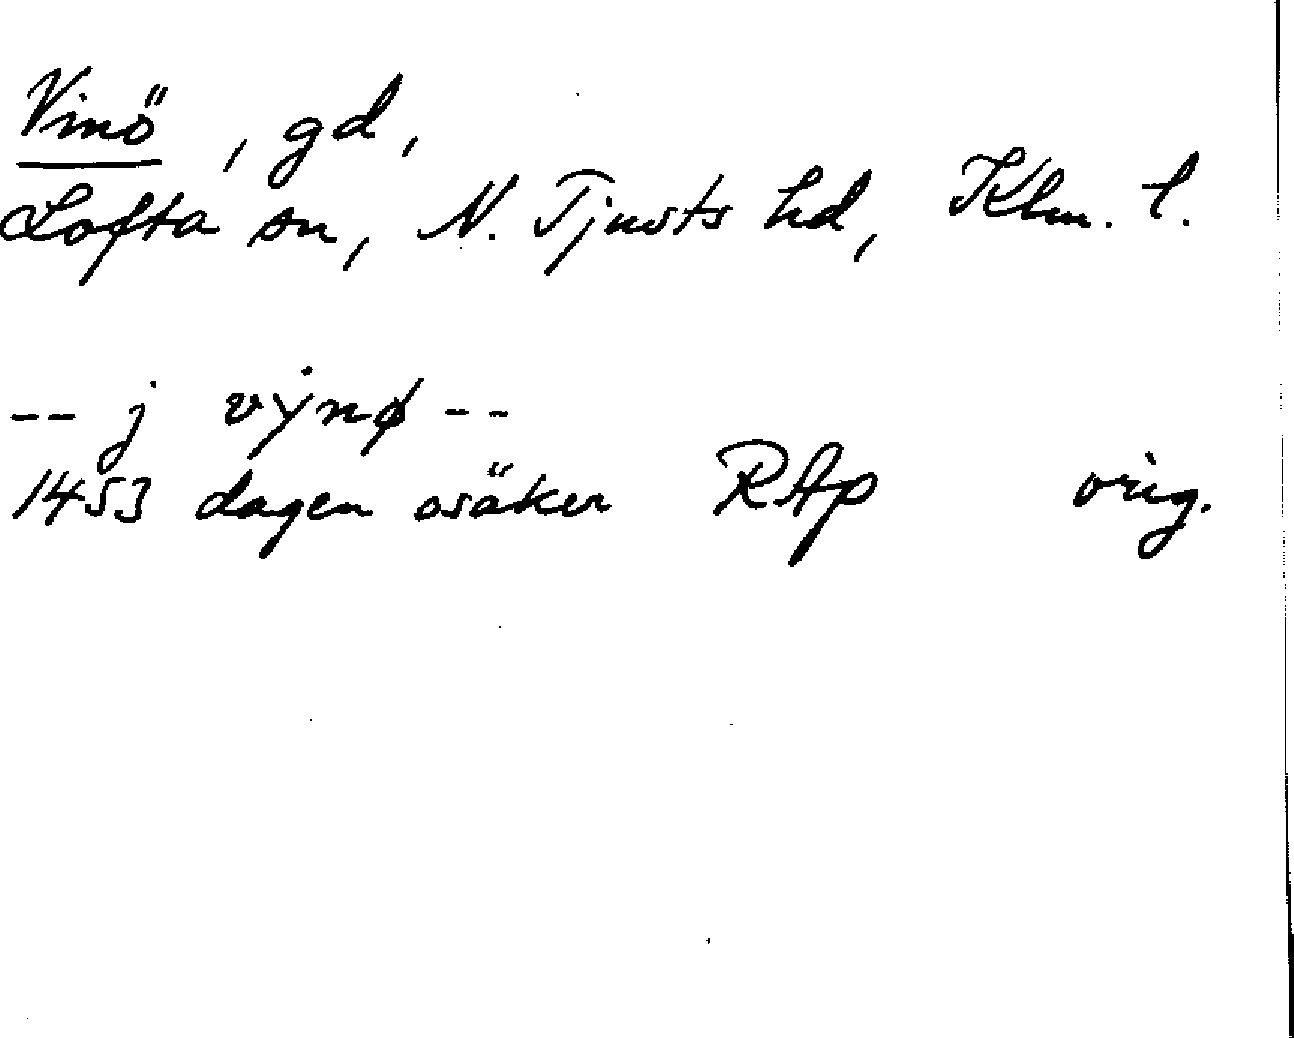 Vinö, gd,
Lofta sn, N. Tjusts hd, Klm. l.
-- j vẏnø --
1453 dagen osäker RAp orig.